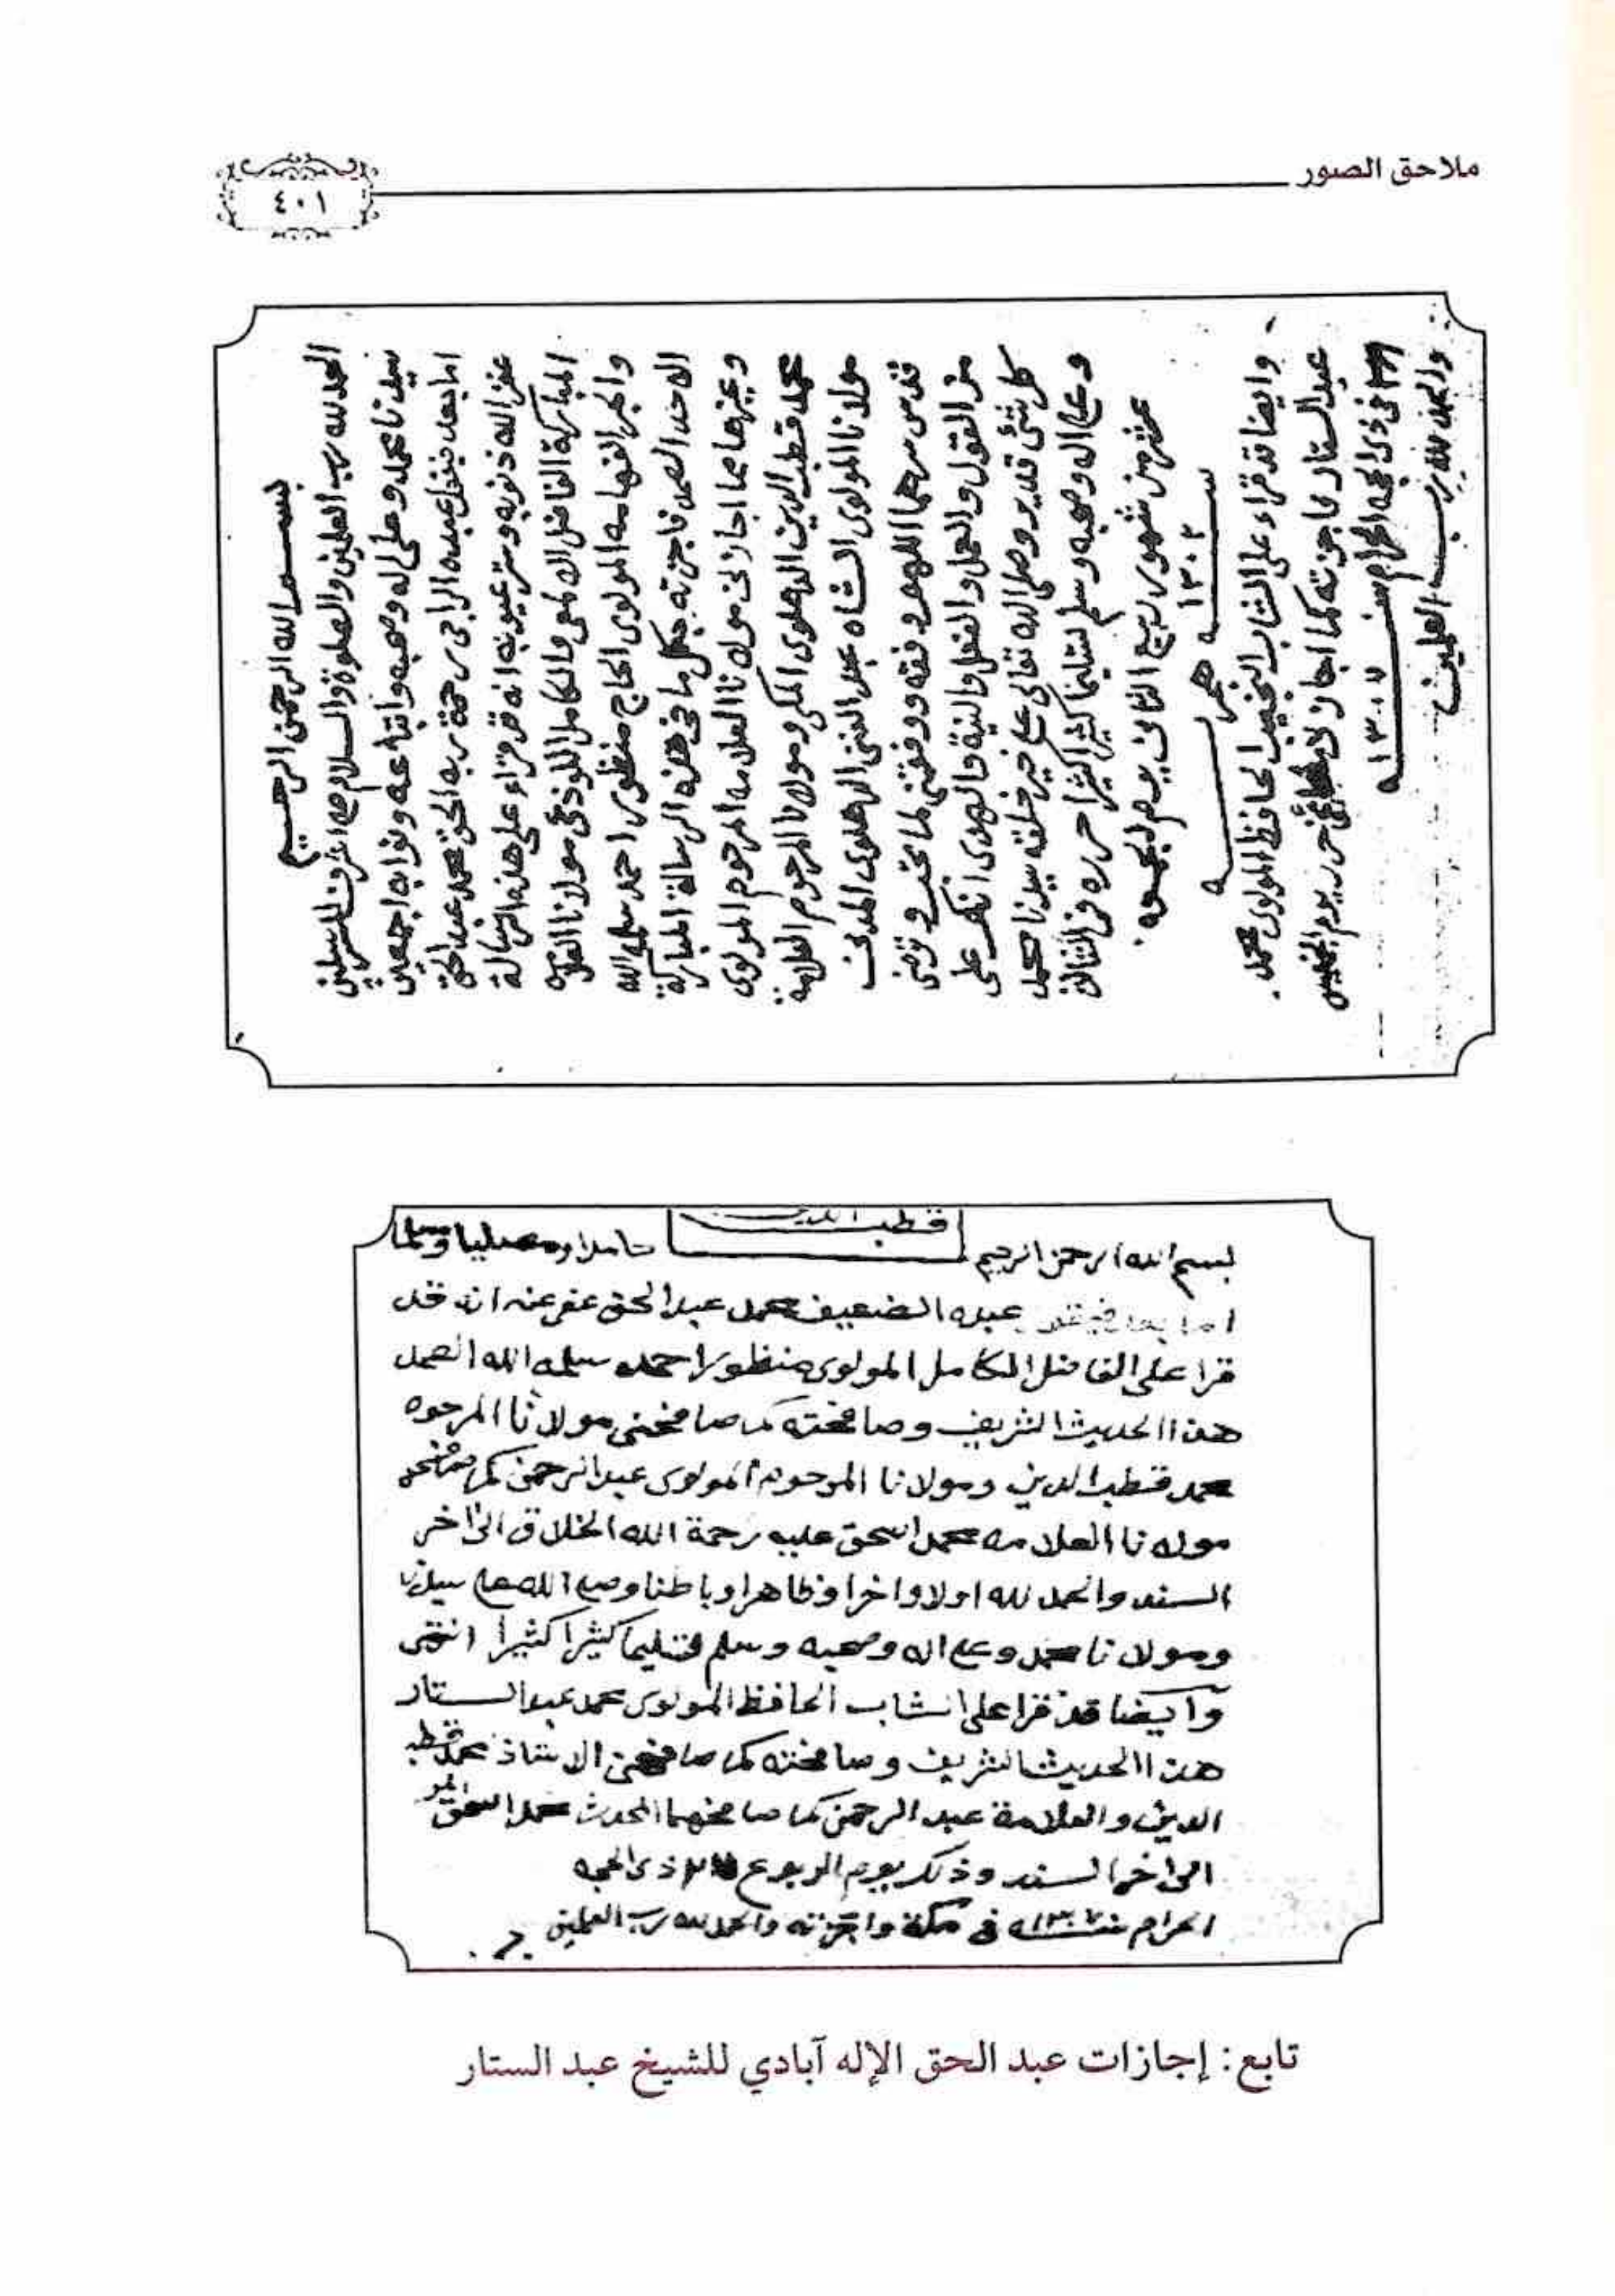 ملاحق الصور
٤٠١
بسم الله الرحمن الرحيم
الحمد لله رب العلمين والصلوة والسلام على اشرف المرسلين
سيدنا محمد وعلى اله وصحبه واتباعه ونوابه اجمعين
اما بعد فيقول عبده الراجى رحمة ربه الحق محمد عبد الحق
غفر الله ذنوبه وستر عيوبه انه قد قراء على هذه الرسالة
المباركة الفاضل الالمعى والكامل اللوذعى مولانا العلامه
والحبر الفهامه المولوى الحاج منظور احمد سلمه الله
الاحد الصمد فاجزته بكل ما فى هذه الرسالة المباركة
وغيرها مما اجازنى مولانا العلامه المرحوم المولوى
محمد قطب الدين الدهلوى المكى ومولانا المرحوم العلامة
مولانا المولوى الشاه عبد الغنى الدهلوى المدنى
قدس سرهما اللهم وفقه ووفقنى لما تحب وترضى
من القول والعمل والفعل والنية والهدى انك على
كل شئ قدير وصلى الله تعالى على خير خلقه سيدنا محمد
وعلى اله وصحبه وسلم تسليما كثيرا كثيرا حرره فى الثالث
عشر من شهور ربيع الثانى يوم الجمعه
سنه ١٣٠٢ هجر
وايضا قد قراء على الشاب النجيب الحافظ المولوى محمد
عبد الستار فاجزته كما اجازنى حرر يوم الخميس
فى ذى الحجه الحرام سنه ١٣٠٧
والحمد لله رب العلمين
قطب الدين
بسم الله الرحمن الرحيم حامدا ومصليا ومسلما
اما بعد فيقول عبده الضعيف محمد عبد الحق عفى عنه انه قد
قرا على الفاضل الكامل المولوى منظور احمد سلمه الله الصمد
هذا الحديث الشريف وصافحته كما صافحنى مولانا المرحوم
محمد قطب الدين ومولانا المرحوم المولوى عبد الرحمن كما صافحهما
مولانا العلامه محمد اسحق عليه رحمة الله الخلاق الى اخر
السند والحمد لله اولا واخرا وظاهرا وباطنا وصلى الله على سيدنا
ومولانا محمد وعلى اله وصحبه وسلم تسليما كثيرا كثيرا انتهى
وايضا قد قرا على الشاب الحافظ المولوى محمد عبد الستار
هذا الحديث الشريف وصافحته كما صافحنى الاستاذ محمد قطب
الدين والعلامة عبد الرحمن كما صافحهما المحدث محمد اسحق
الى اخر السند وذلك يوم الربوع ذى الحجه
الحرام سنه ١٣٠٧ فى مكة واجزته والحمد لله رب العلمين
تابع: إجازات عبد الحق الإله آبادي للشيخ عبد الستار